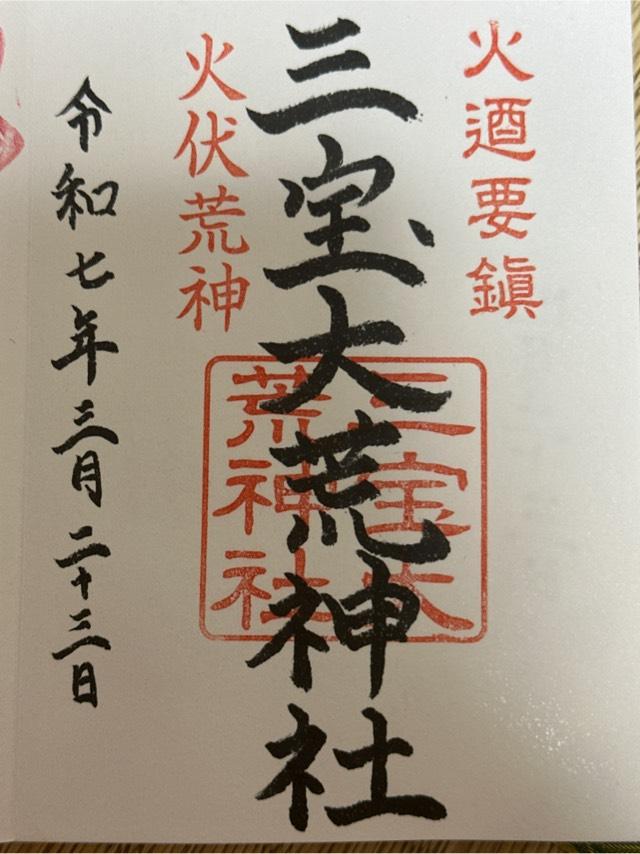 火迺要鎭
三宝大荒神社
三宝大
荒神社
火伏荒神
令和七年三月二十三日